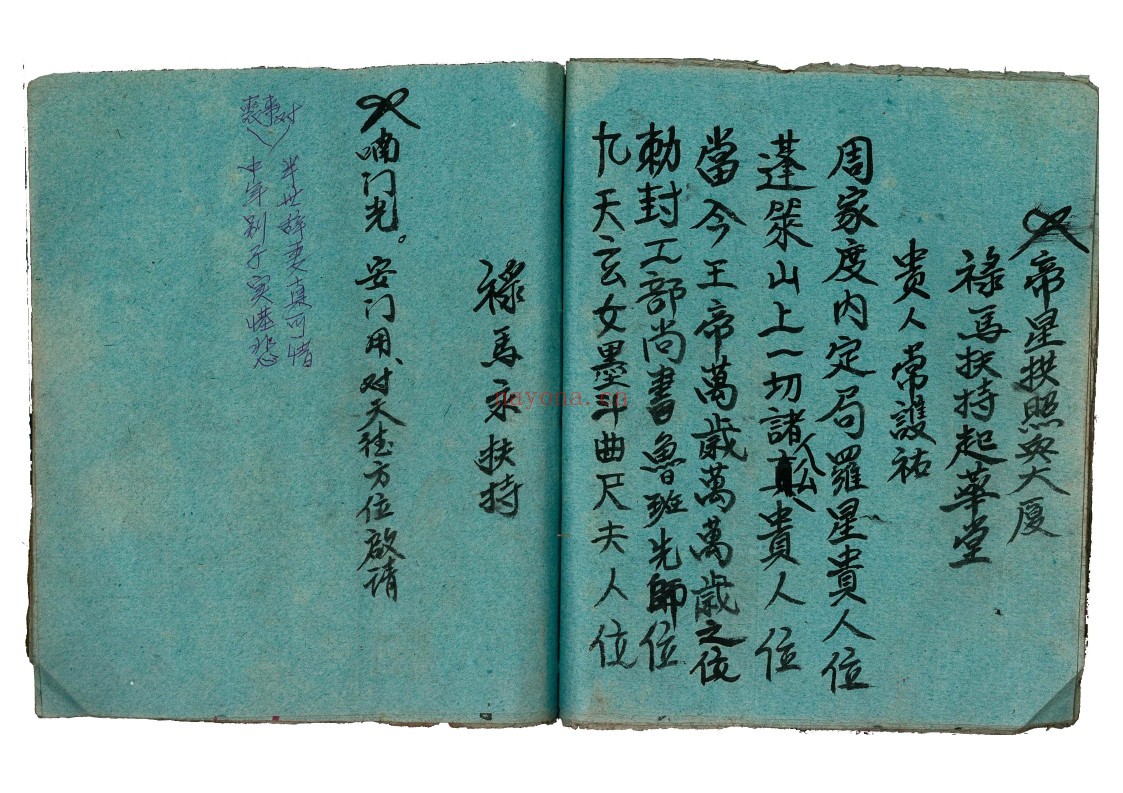 帝星拱照興大厦
祿馬扶持起華堂
貴人常護祐
周家度内定局羅星貴人位
蓬萊山上一切諸真人公貴人位
當今王帝萬歲萬萬歲之位
勅封工部尚書魯班先師位
九天玄女墨斗曲尺夫人位
祿馬永扶持
喃门光。安门用、对天德方位啟请
喪事对
半世辞妻真可惜
中年别子实悲